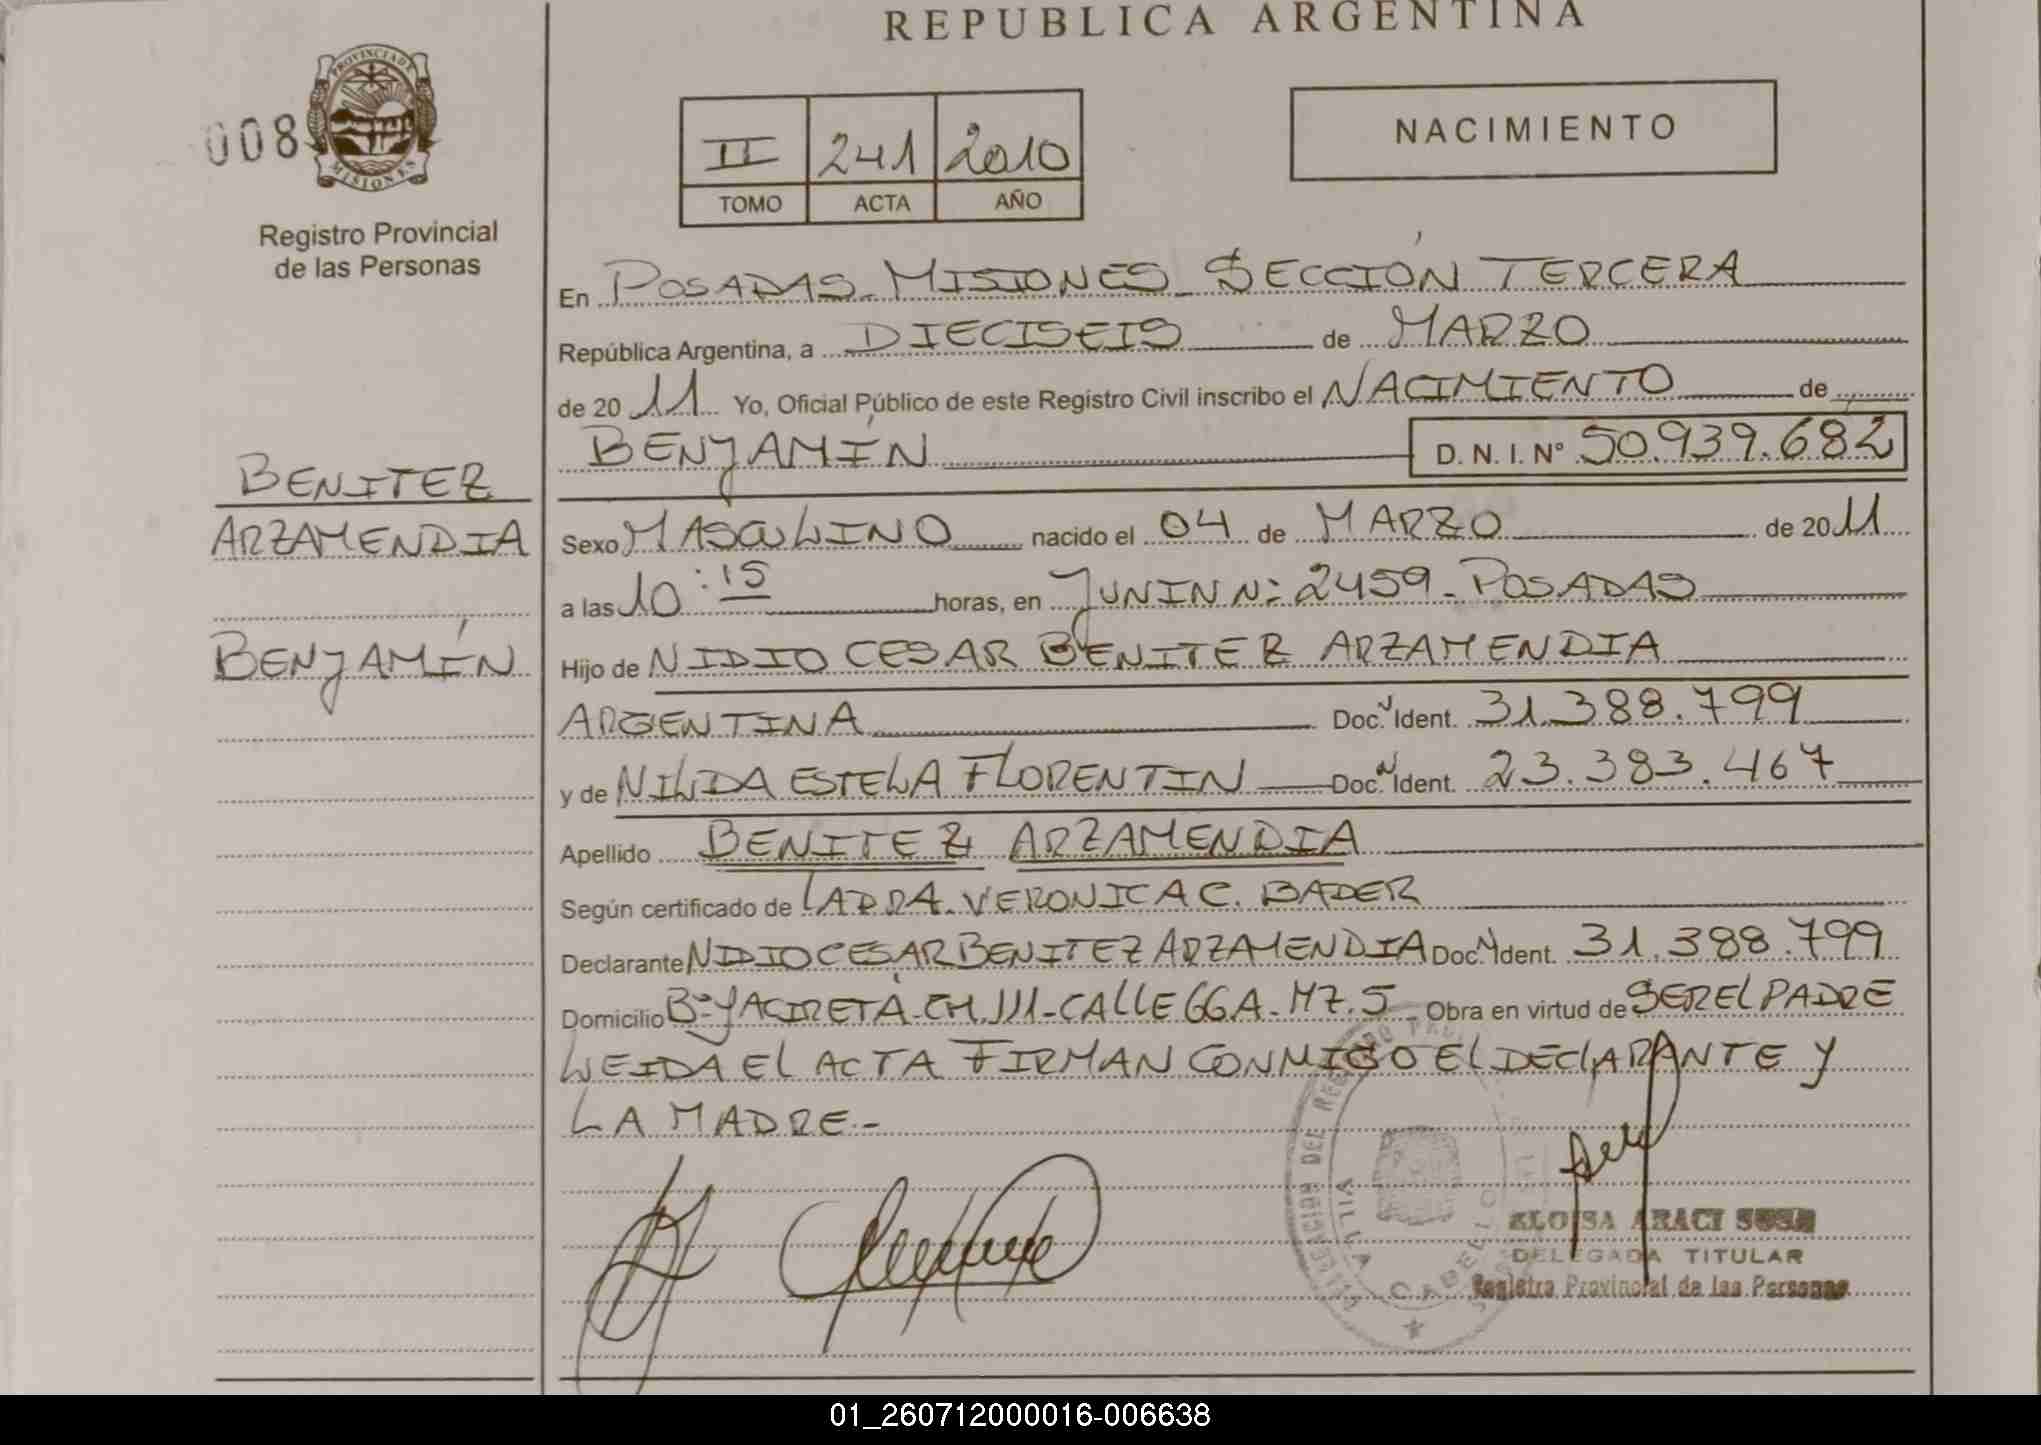 REPUBLICA ARGENTINA
008
PROVINCIA DE
MISIONES
Registro Provincial
de las Personas
II 241 2010
TOMO ACTA AÑO
NACIMIENTO
En POSADAS - MISIONES - SECCIÓN TERCERA
República Argentina, a DIECISEIS de MARZO
de 2011 Yo, Oficial Público de este Registro Civil inscribo el NACIMIENTO de
BENJAMÍN D. N. I. Nº 50.939.682
BENITEZ
ARZAMENDIA
BENJAMÍN
Sexo MASCULINO nacido el 04 de MARZO de 2011
a las 10:15 horas, en JUNIN N: 2459 - POSADAS
Hijo de NIDIO CESAR BENITEZ ARZAMENDIA
ARGENTINA Doc. N Ident. 31.388.799
y de NILDA ESTELA FLORENTIN Doc. N Ident. 23.383.467
Apellido BENITEZ ARZAMENDIA
Según certificado de LA DRA. VERONICA C. BADER
Declarante NIDIO CESAR BENITEZ ARZAMENDIA Doc. N Ident. 31.388.799
Domicilio Bº YACIRETÁ - CH. 111 - CALLE 66A - MZ. 5 Obra en virtud de SER EL PADRE
LEIDA EL ACTA FIRMAN CONMIGO EL DECLARANTE Y
LA MADRE.-
VILLA CABELLO
ELOISA ARACI SOSA
DELEGADA TITULAR
Registro Provincial de las Personas
01_260712000016-006638